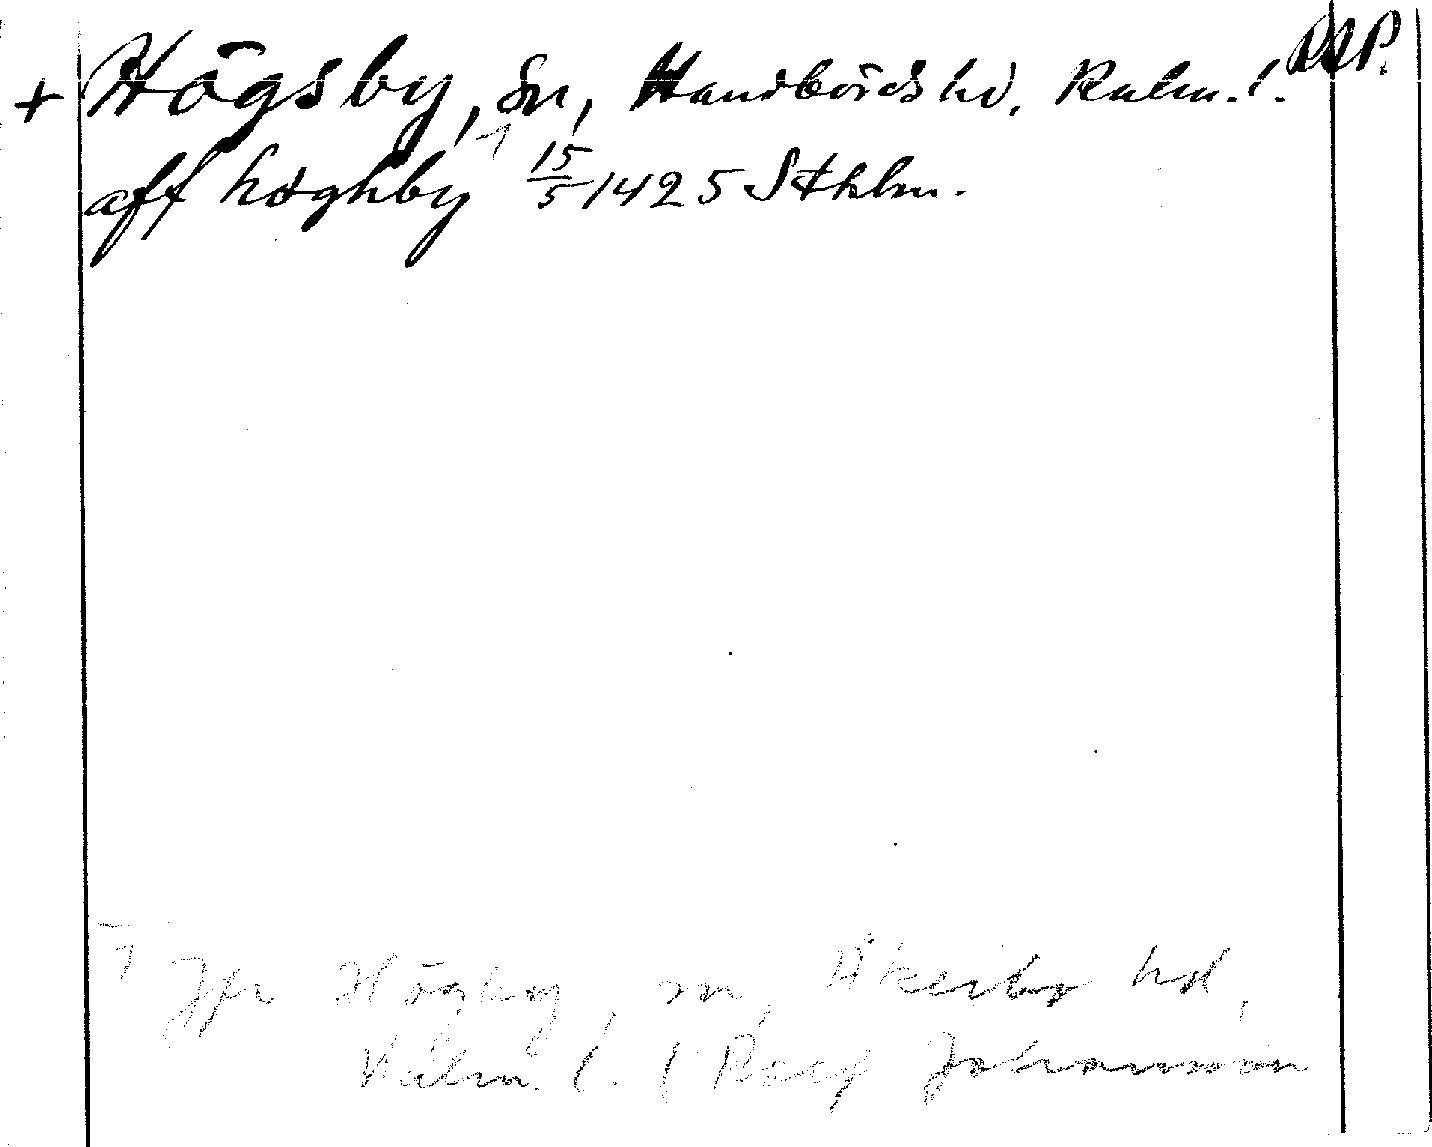 + Högsby, sn, Handbörds hd, Kalm. l. RAP.
aff høghby 15/5 1425 Sthlm.
1) Jfr Högby, sn, Åkerbo hd,
Kalm. l. ( Johansson